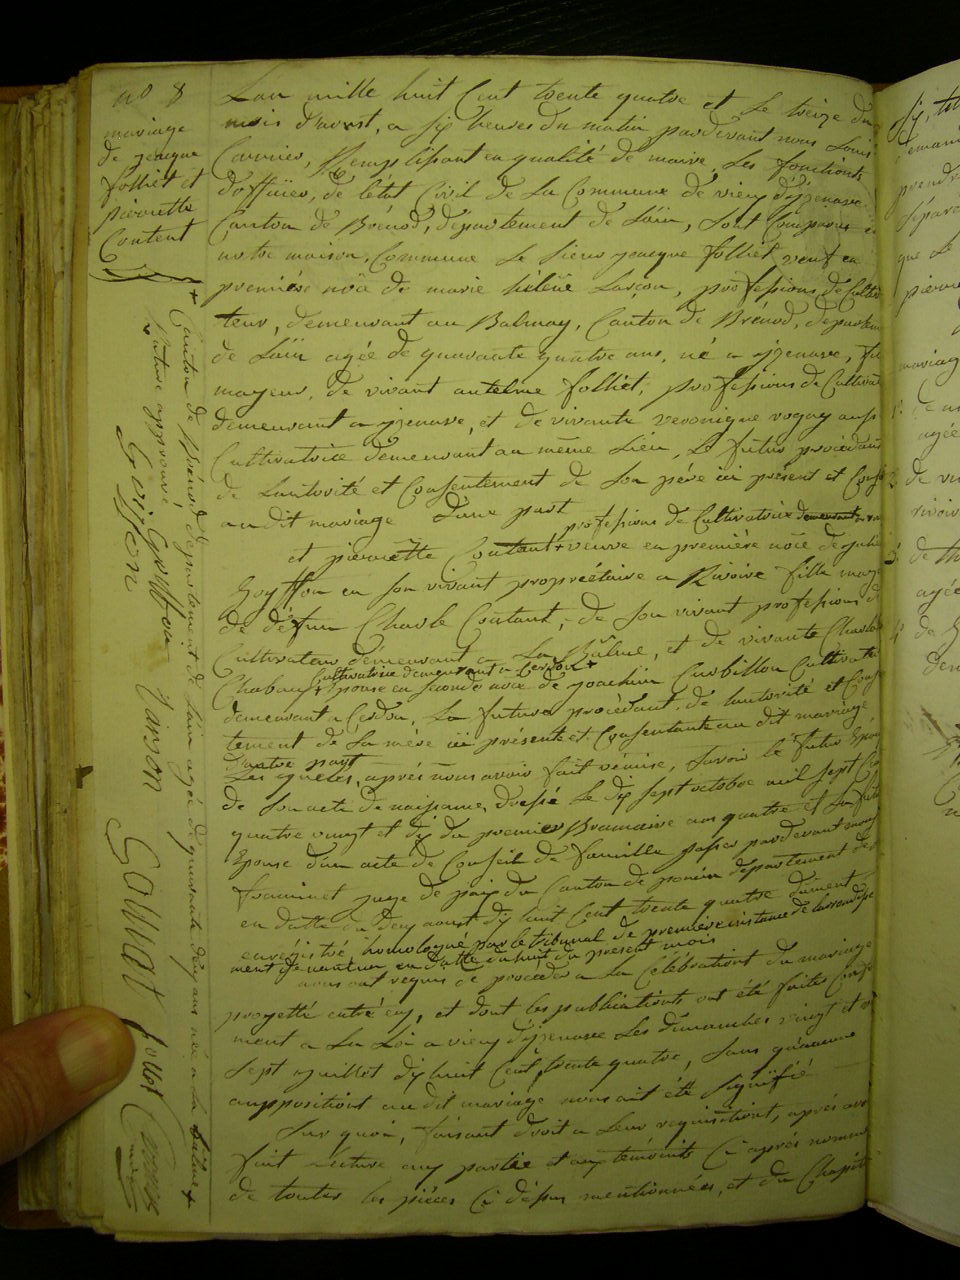 no 8
mariage
de jacque
folliet et
pierrette
Content
L'an mille huit Cent trente quatre et Le treize du
mois d'aoust, a six heures du matin pardevant nous Louis
Carrier, Remplissant en qualité de maire, Les fonctions
d'officier, de létat Civil de La Commune de vieu d'izenave
Canton de Brénod, département de Lain, Sont Comparus en
notre maison, Commune Le Sieur jacque folliet veuf en
première nôce de marie hélène Larçon, professions de Cultiva
teur, demeurant au Balmay, Canton de Brénod, departem
de Lain agée de quarante quatre ans, né a izenave, fil
mageur, de vivant antelme folliet, professions de Cultivat
demeurant a izenave, et de vivante veronique vogay aussi
Cultivatrice demeurant au même Lieu, Le futur procédant
de Lautorité et Consentement de Son père ici présent et Conse
au dit mariage d'une part
professions de Cultivatrice demeurant
et pierrette Contant + veuve en première nôce de
Goyffon en son vivant propriétaire a Rivoire fille mage
de défun Charle Contant, de Son vivant professions de
Cultivateur demeurant a La Balme, et de vivante Charlo
Cultivatrice demeurant a Cerdon +
Chabau épouse en seconde nôce de joachim Curbillon Cultivate
demeurant a Cerdon, La future procédant, de lautorité et Conse
tement de Sa mère ici présente et Consentante au dit mariage
d'autre part
Les quelles, après nous avoir fait remise, Savoir le futur Epoux
de Son acte de naissance, dressé le dix sept octobre mil sept Cen
quatre vingt et dix du premier Brumaire an quatre et La futu
Epouse d'un acte de Conseil de famille passer pardevant
juge de paix du Canton de poncin département de
en datte du aoust dix huit Cent trente quatre dûment
enrégistré, homologué par le tribunal de première instance de larrondisse
ment de nantua en datte du huit du présent mois
nous ont requis de procéder a La Célébrations du mariage
projetté entré eux, et dont les publications ont été faites Confo
ment a La Loi a vieu d'izenave Les dimanches vingt et
sept juillet dix huit Cent trente quatre, Sans qu'aucune
auppositions au dit mariage nous ait été Signifié
Sur quoi, faisant droit a Leur requisitions, après avo
fait Lecture aux parties et aux témoints Ci après nommé
de toutes les pièces Ci dessus mentionnées, et du Chapit
+ Canton de Brénod département de Lain agée de quarante deux ans née a La Balme +
Rature approuvé
Goiffon
Tairon
Folliet
Carrier
maire